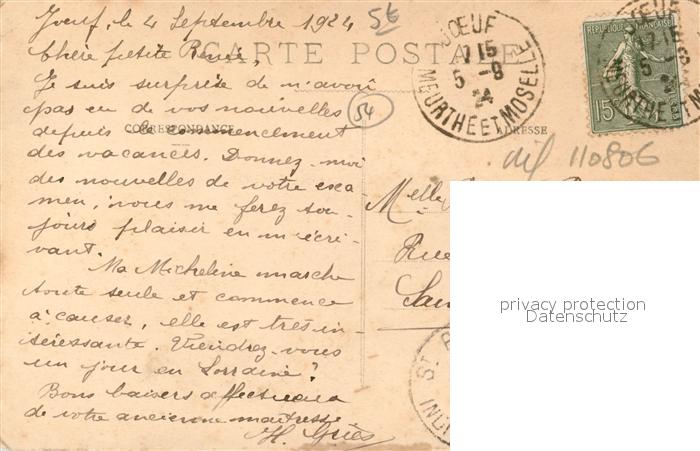 Jœuf, le 4 Septembre 1924
5€
Chère petite Renée,
CARTE POSTALE
Je suis surprise de n'avoir
pas eu de vos nouvelles
54
depuis le commencement
CORRESPONDANCE
ADRESSE
des vacances. Donnez-moi
des nouvelles de votre exa-
men, vous me ferez tou-
jours plaisir en m'écri-
vant.
Ma Micheline marche
toute seule et commence
à causer, elle est très in-
téressante. Viendrez-vous
un jour en Lorraine?
Bons baisers affectueux
de votre ancienne maitresse
H. Griès
JŒUF
17 15
5 - 9
24
MEURTHE ET MOSELLE
REPUBLIQUE FRANÇAISE
15
dif 110806
Melle
Rue
privacy protection
Datenschutz